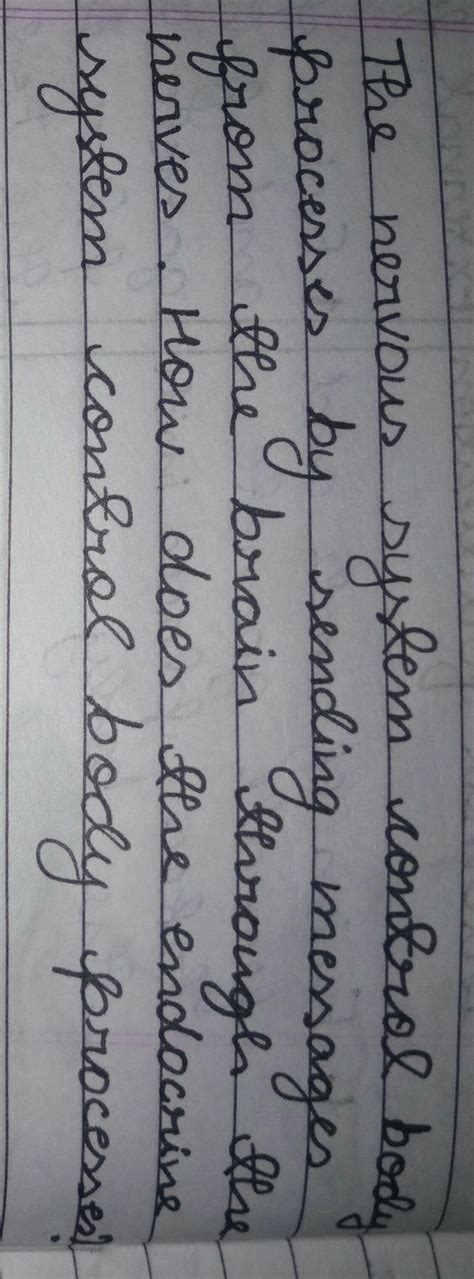 The nervous system control body
processes by sending messages
from the brain through the
nerves. How does the endocrine
system control body processes?